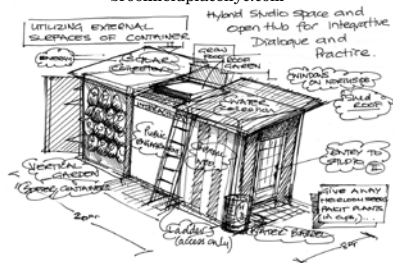 UTILIZING EXTERNAL
SURFACES OF CONTAINER
Hybrid Studio space and
open Hub for Integrative
Dialogue and
Practice.
ENERGY
SOLAR
COLLECTION
GROW
FOOD
ROOF
GARDEN
WATER
COLLECTION
WINDOWS
ON NORTHSIDE
ROOF
Public
ENTRY TO
STUDIO
VERTICAL
GARDEN
CONTAINERS
Ladder
(access only)
WATER BARREL
GIVE AWAY
HEIRLOOM SEEDS
PLANTS
IN CUPS,...
20ft
8ft